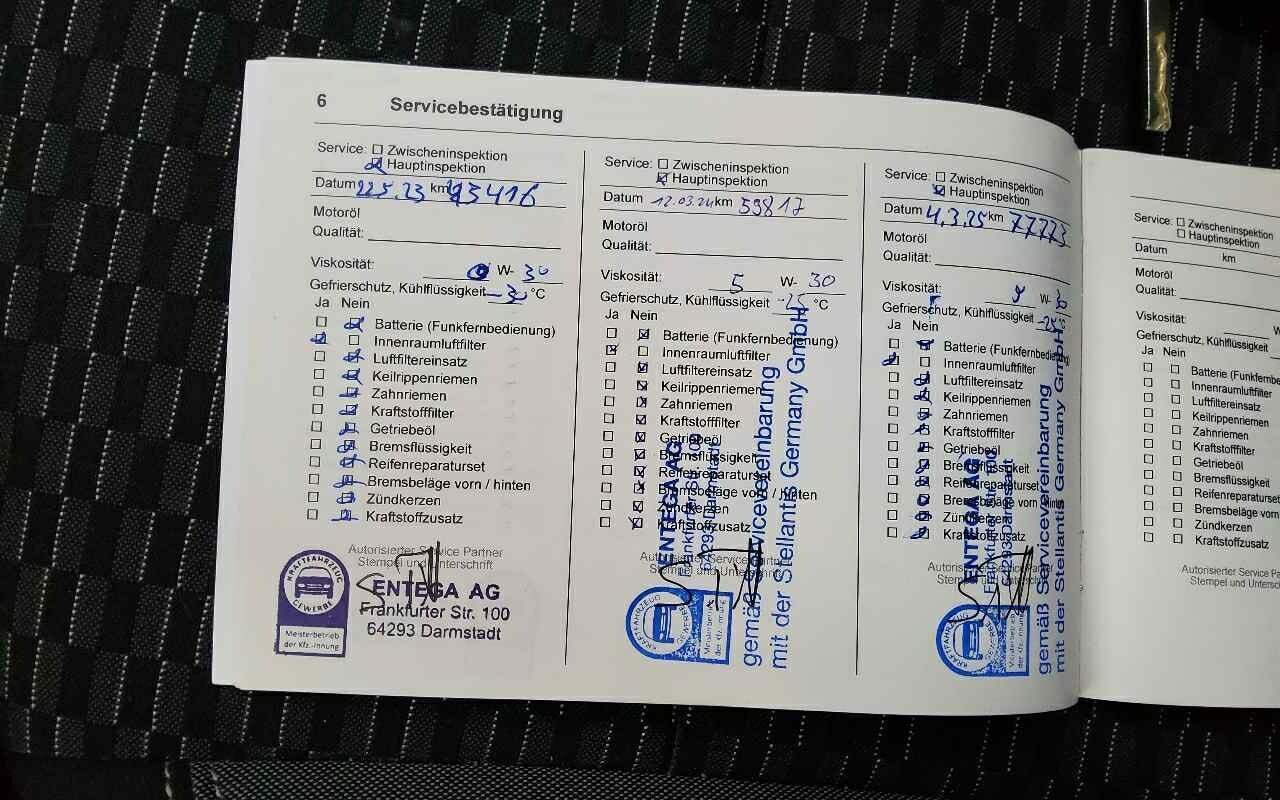 6 Servicebestätigung
Service: Zwischeninspektion
Hauptinspektion
Datum 22.5.23 km 43416
Motoröl
Qualität:
Viskosität: 0 W- 30
Gefrierschutz, Kühlflüssigkeit -30 °C
Ja Nein
Batterie (Funkfernbedienung)
Innenraumluftfilter
Luftfiltereinsatz
Keilrippenriemen
Zahnriemen
Kraftstofffilter
Getriebeöl
Bremsflüssigkeit
Reifenreparaturset
Bremsbeläge vorn / hinten
Zündkerzen
Kraftstoffzusatz
Autorisierter Service Partner
Stempel und Unterschrift
KRAFTFAHRZEUG
GEWERBE
Meisterbetrieb
der Kfz.-Innung
ENTEGA AG
Frankfurter Str. 100
64293 Darmstadt
Service: Zwischeninspektion
Hauptinspektion
Datum 12.03.24 km 59817
Motoröl
Qualität:
Viskosität: 5 W- 30
Gefrierschutz, Kühlflüssigkeit -25 °C
Ja Nein
Batterie (Funkfernbedienung)
Innenraumluftfilter
Luftfiltereinsatz
Keilrippenriemen
Zahnriemen
Kraftstofffilter
Getriebeöl
Bremsflüssigkeit
Reifenreparaturset
Bremsbeläge vorn / hinten
Zündkerzen
Kraftstoffzusatz
Autorisierter Service Partner
Stempel und Unterschrift
KRAFTFAHRZEUG
GEWERBE
Meisterbetrieb
der Kfz.-Innung
ENTEGA AG
Frankfurter Str. 100
64293 Darmstadt
gemäß Servicevereinbarung
mit der Stellantis Germany GmbH
Service: Zwischeninspektion
Hauptinspektion
Datum 4.3.25 km 77223
Motoröl
Qualität:
Viskosität: W-
Gefrierschutz, Kühlflüssigkeit -25
Ja Nein
Batterie (Funkfernbedienung
Innenraumluftfilter
Luftfiltereinsatz
Keilrippenriemen
Zahnriemen
Kraftstofffilter
Getriebeöl
Bremsflüssigkeit
Reifenreparaturset
Bremsbeläge vorn / hinten
Zündkerzen
Kraftstoffzusatz
Autorisierter Service
Stempel und Unterschrift
KRAFTFAHRZEUG
GEWERBE
Meisterbetrieb
der Kfz.-Innung
ENTEGA AG
Frankfurter Str. 100
64293 Darmstadt
gemäß Servicevereinbarung
mit der Stellantis Germany GmbH
Service: Zwischeninspektion
Hauptinspektion
Datum km
Motoröl
Qualität:
Viskosität: W
Gefrierschutz, Kühlflüssigkeit
Ja Nein
Batterie (Funkfernbe
Innenraumluftfilter
Luftfiltereinsatz
Keilrippenriemen
Zahnriemen
Kraftstofffilter
Getriebeöl
Bremsflüssigkeit
Reifenreparaturset
Bremsbeläge vorn
Zündkerzen
Kraftstoffzusatz
Autorisierter Service
Stempel und Untersch